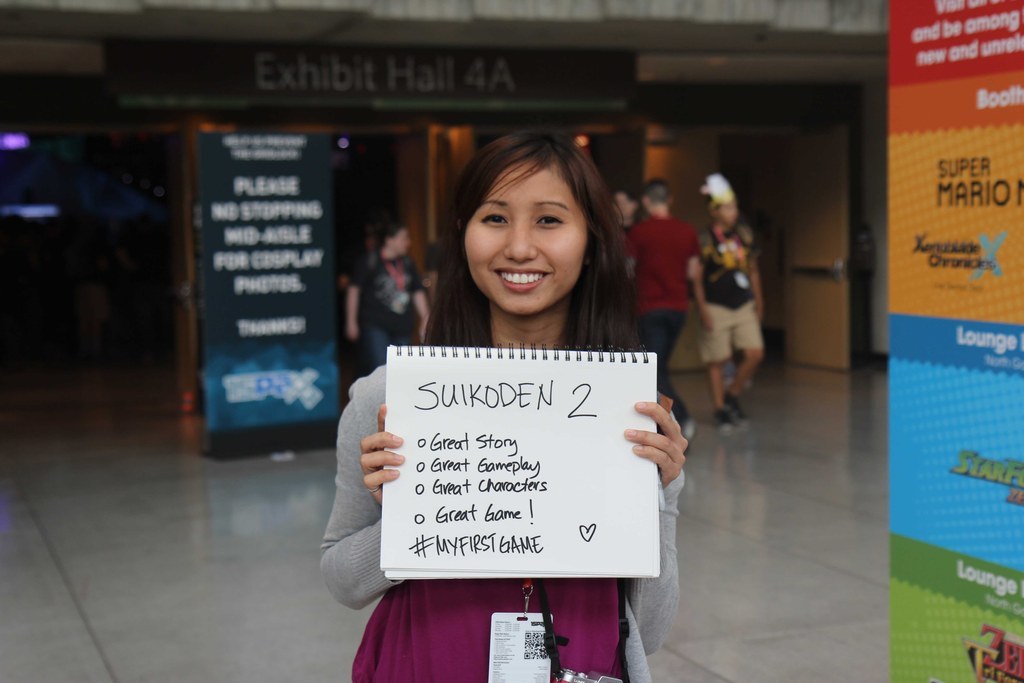 Exhibit Hall 4A
PLEASE
NO STOPPING
MID-AISLE
FOR COSPLAY
PHOTOS.
THANKS!
SUIKODEN 2
Great Story
Great Gameplay
Great Characters
Great Game!
#MYFIRSTGAME
and be among
new and
Booth
SUPER
MARIO M
Xenoblade
Chronicles X
Lounge
North
STARF
Lounge
North
ZE